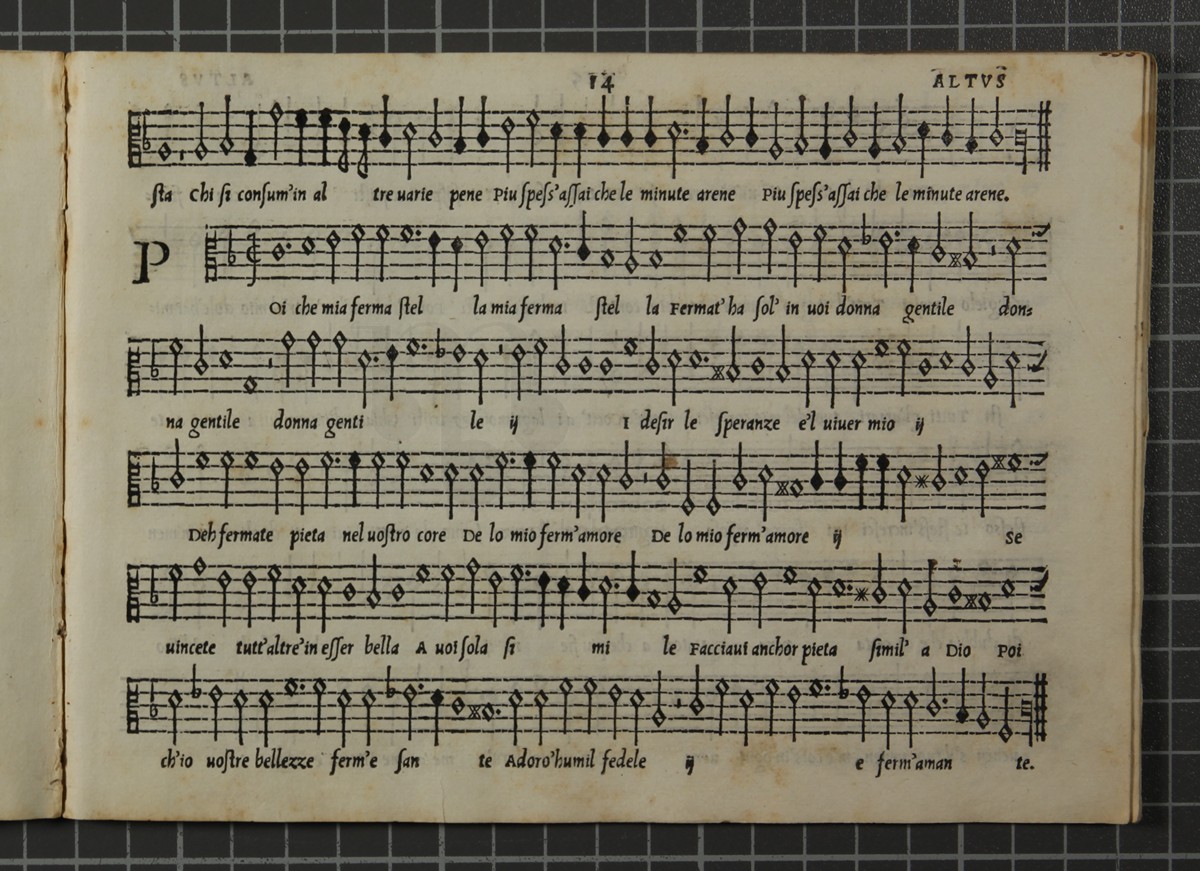 14 ALTVS
sta Chi si consum'in al tre uarie pene Piu spess'assai che le minute arene Piu spess'assai che le minute arene.
P
Oi che mia ferma stel la mia ferma stel la Fermat'ha sol' in uoi donna gentile don=
na gentile donna genti le ij I desir le speranze e'l uiuer mio ij
Deh fermate pieta nel uostro core De lo mio ferm'amore De lo mio ferm'amore ij Se
uincete tutt'altre'in esser bella A uoi sola si mi le Facciaui anchor pieta simil' a Dio Poi
ch'io uostre bellezze ferm'e san te Adoro'humil fedele ij e ferm'aman te.